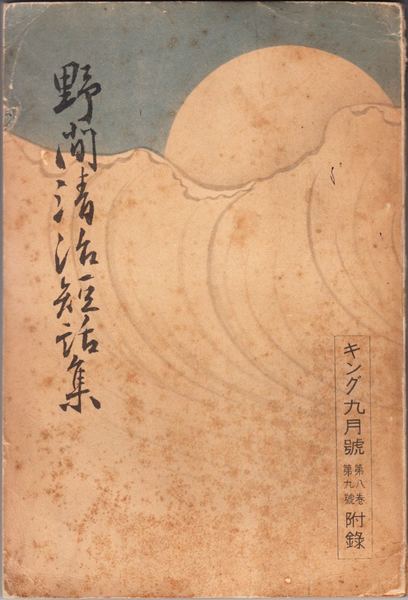 野間清治短話集
キング九月號 第八卷 第九號 附錄